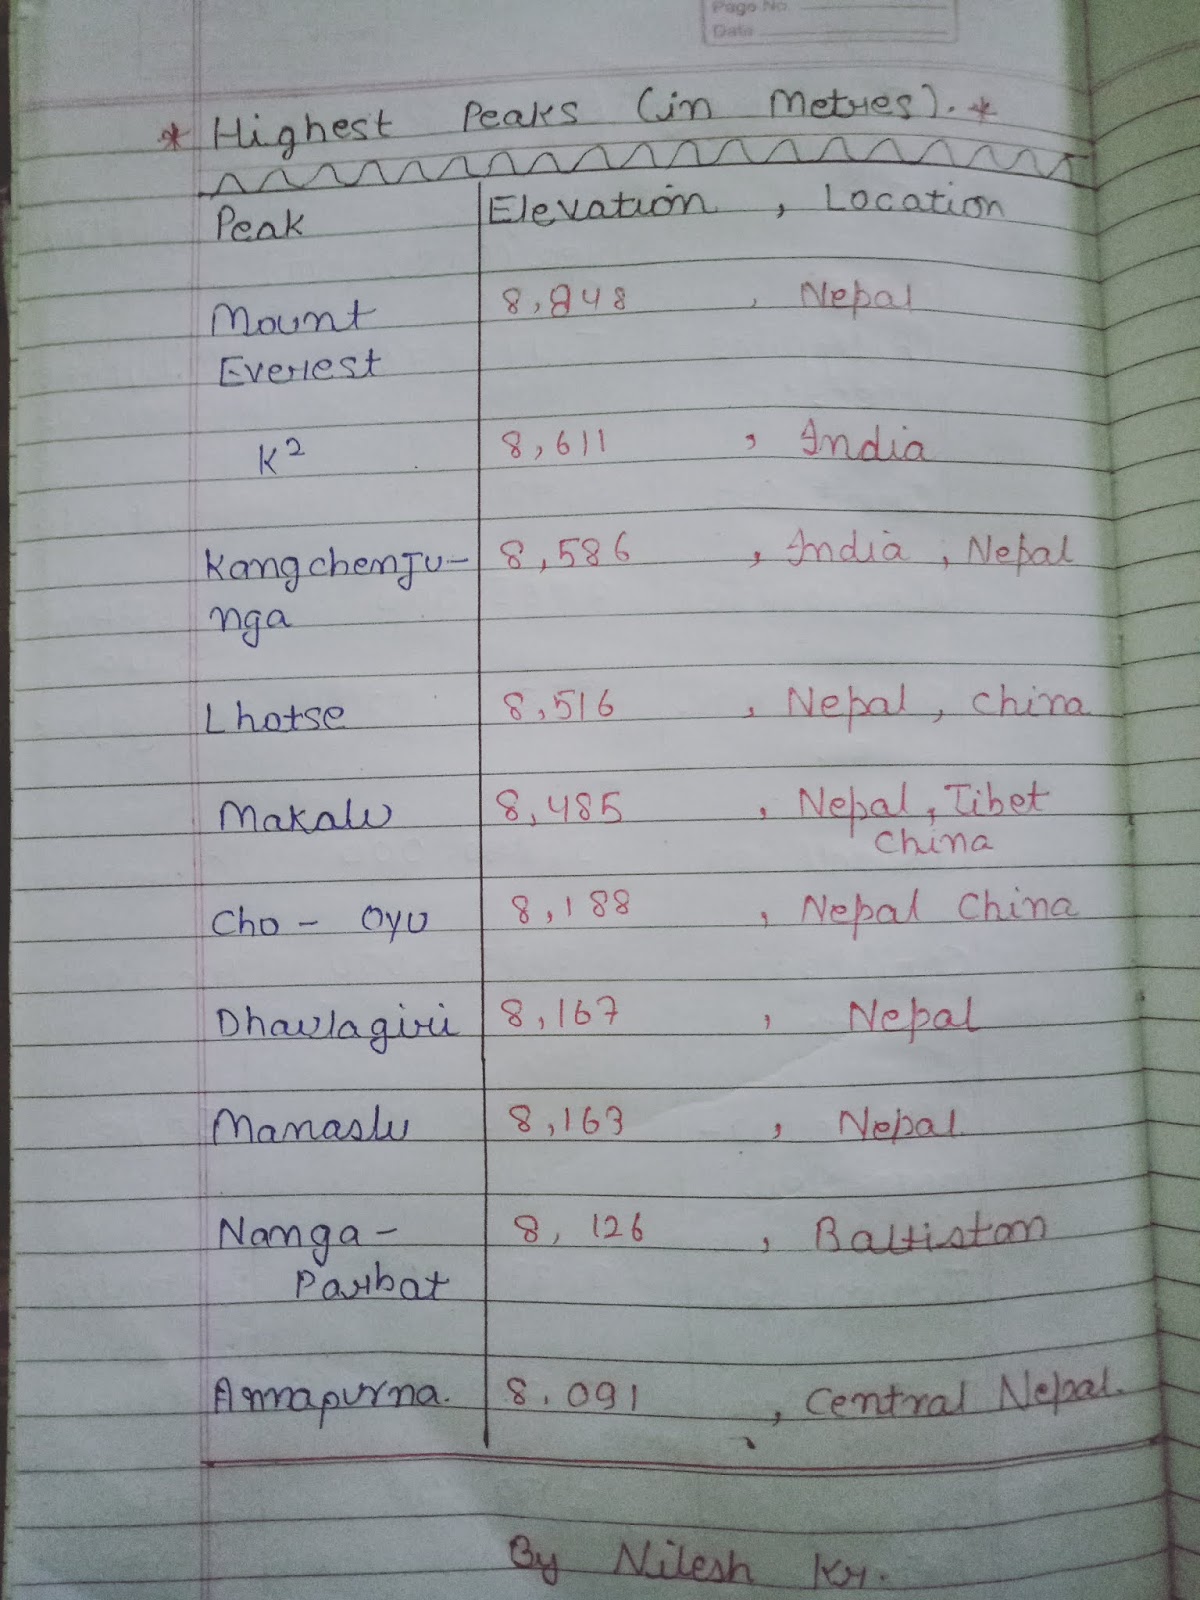 Page No.
Date
* Highest Peaks (in Metres). *
Peak Elevation , Location
Mount 8,848 , Nepal
Everest
K2 8,611 , India
Kangchenju- 8,586 , India , Nepal
nga
Lhotse 8,516 , Nepal , China
Makalu 8,485 , Nepal , Tibet
China
Cho - Oyu 8,188 , Nepal China
Dhawlagiri 8,167 , Nepal
Manaslu 8,163 , Nepal
Nanga - 8, 126 , Baltistan
Parbat
Annapurna. 8.091 , Central Nepal.
By Nilesh Kr.